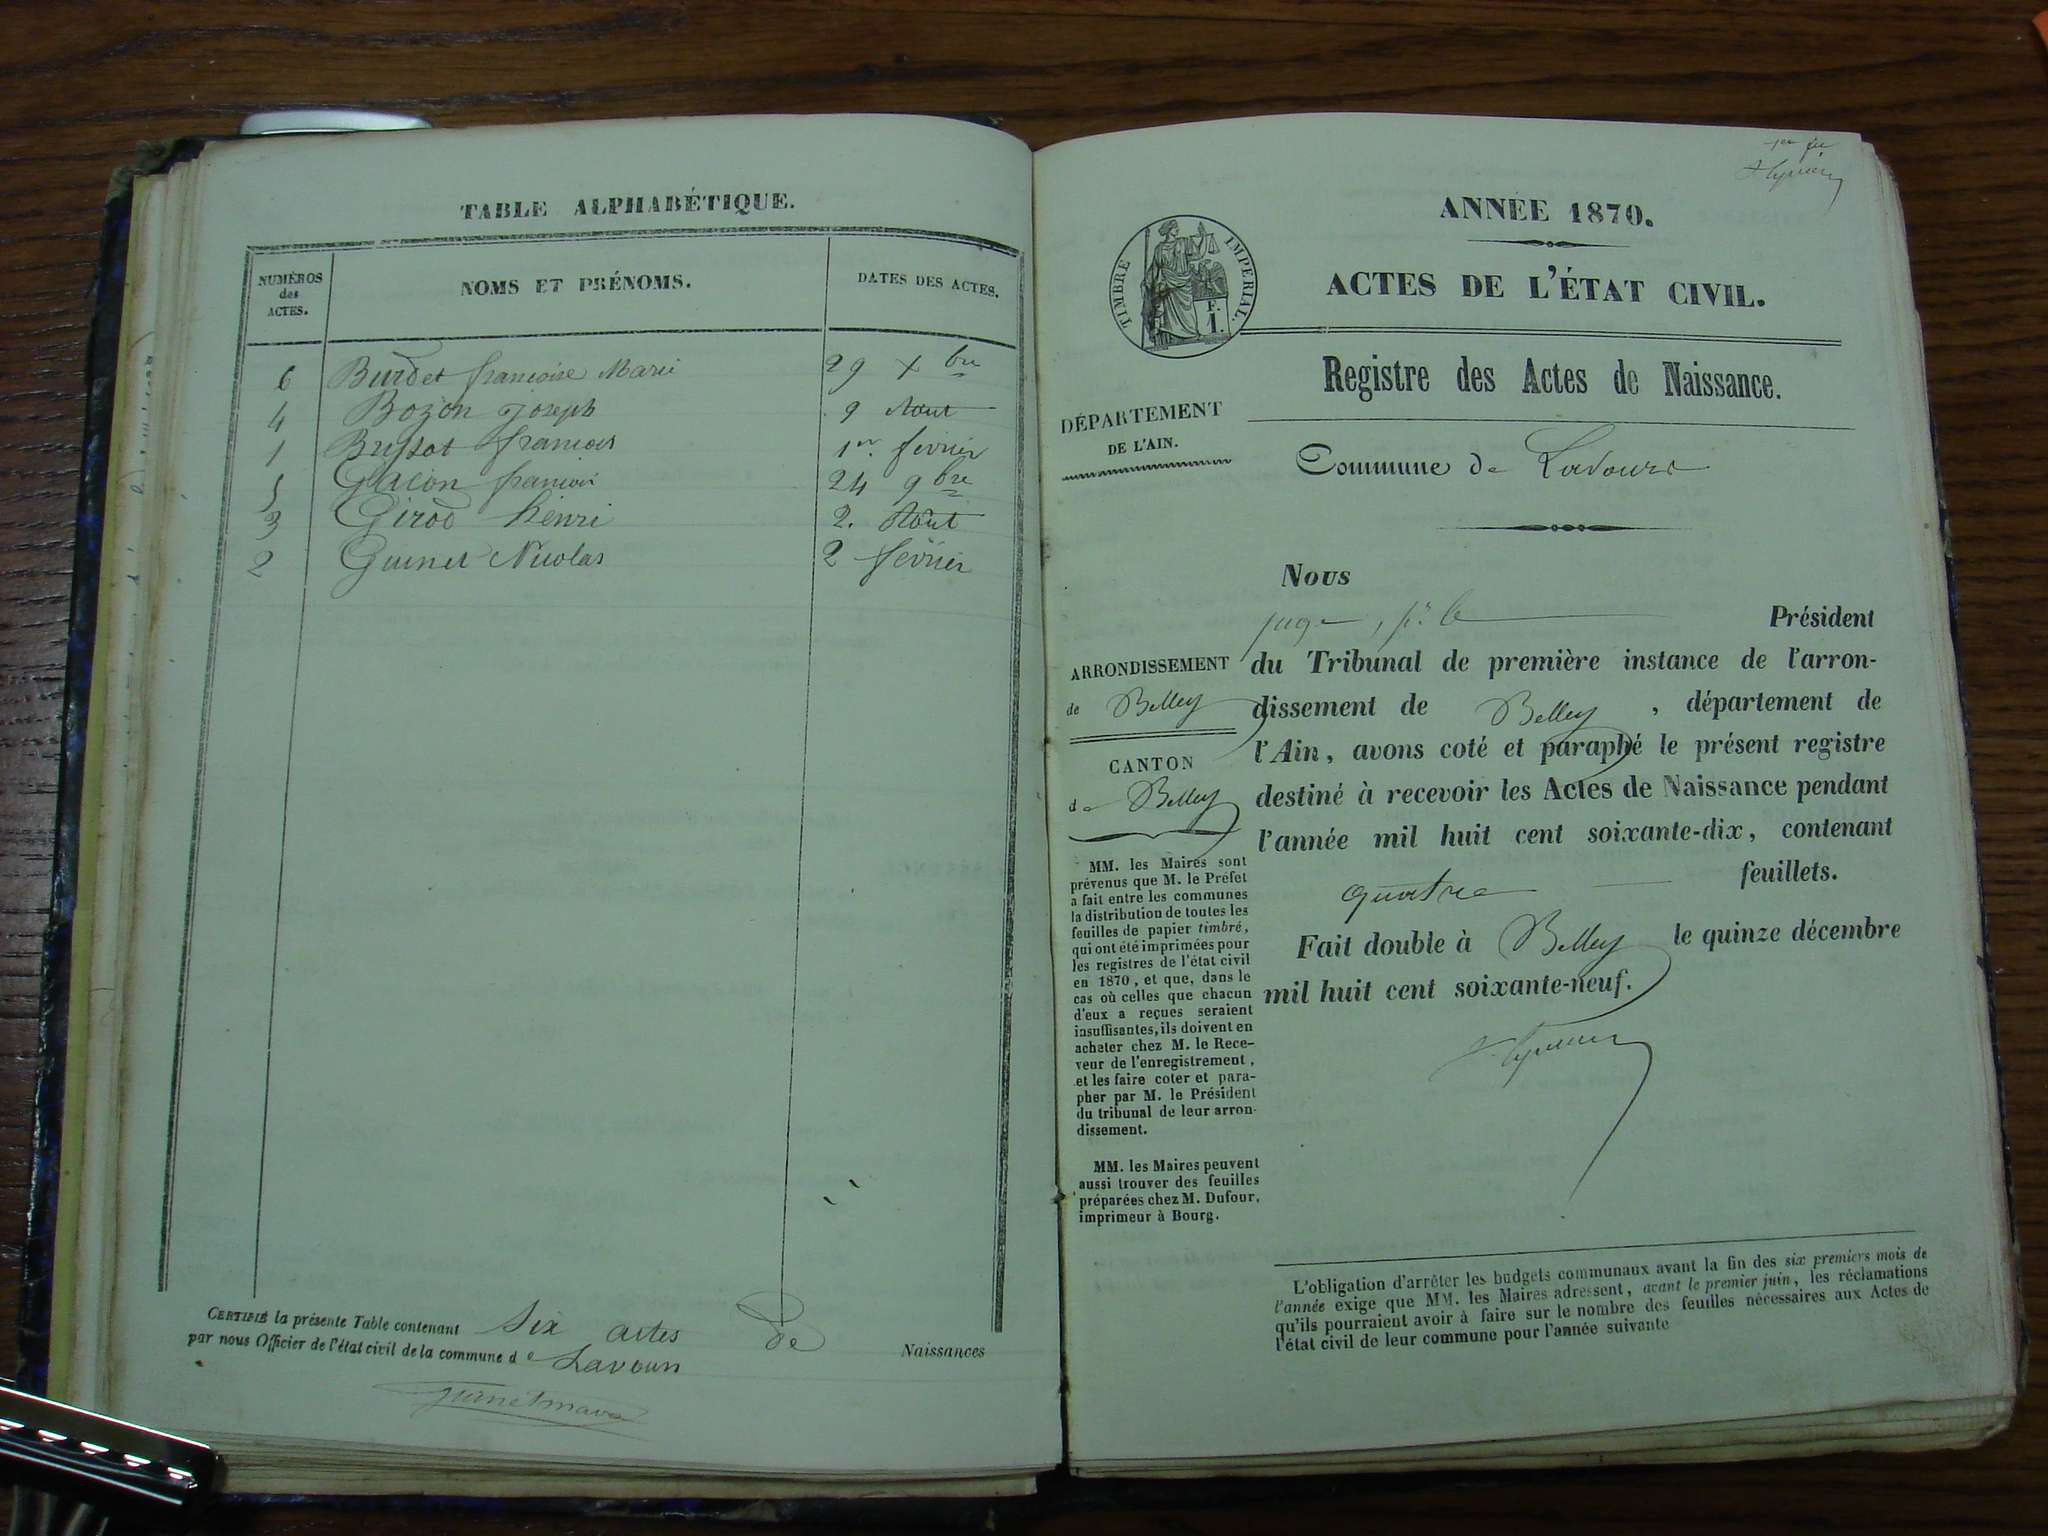 TABLE ALPHABÉTIQUE.
NUMÉROS des ACTES. NOMS ET PRÉNOMS. DATES DES ACTES.
6 Burdet françoise Marie 29 Xbre
4 Bozon Joseph 9 Aout
1 françois 1er février
5 Glacon françois 24 9bre
3 Girod henri 2. Aout
2 Guinet Nicolas 2 février
CERTIFIÉ la présente Table contenant six actes de Naissances
par nous Officier de l'état civil de la commune de Lavours
ANNÉE 1870.
ACTES DE L'ÉTAT CIVIL.
TIMBRE IMPERIAL.
F.
1.
Registre des Actes de Naissance.
DÉPARTEMENT
DE L'AIN.
Commune de Lavours
ARRONDISSEMENT
de Belley
CANTON
de Belley
MM. les Maires sont
prévenus que M. le Préfet
a fait entre les communes
la distribution de toutes les
feuilles de papier timbré,
qui ont été imprimées pour
les registres de l'état civil
en 1870, et que, dans le
cas où celles que chacun
d'eux a reçues seraient
insuffisantes, ils doivent en
acheter chez M. le Rece-
veur de l'enregistrement,
et les faire coter et para-
pher par M. le Président
du tribunal de leur arron-
dissement.
MM. les Maires peuvent
aussi trouver des feuilles
préparées chez M. Dufour,
imprimeur à Bourg.
Nous
juge, pr. le Président
du Tribunal de première instance de l'arron-
dissement de Belley, département de
l'Ain, avons coté et paraphé le présent registre
destiné à recevoir les Actes de Naissance pendant
l'année mil huit cent soixante-dix, contenant
quatre feuillets.
Fait double à Belley le quinze décembre
mil huit cent soixante-neuf.
L'obligation d'arrêter les budgets communaux avant la fin des six premiers mois de
l'année exige que MM. les Maires adressent, avant le premier juin, les réclamations
qu'ils pourraient avoir à faire sur le nombre des feuilles nécessaires aux Actes de
l'état civil de leur commune pour l'année suivante